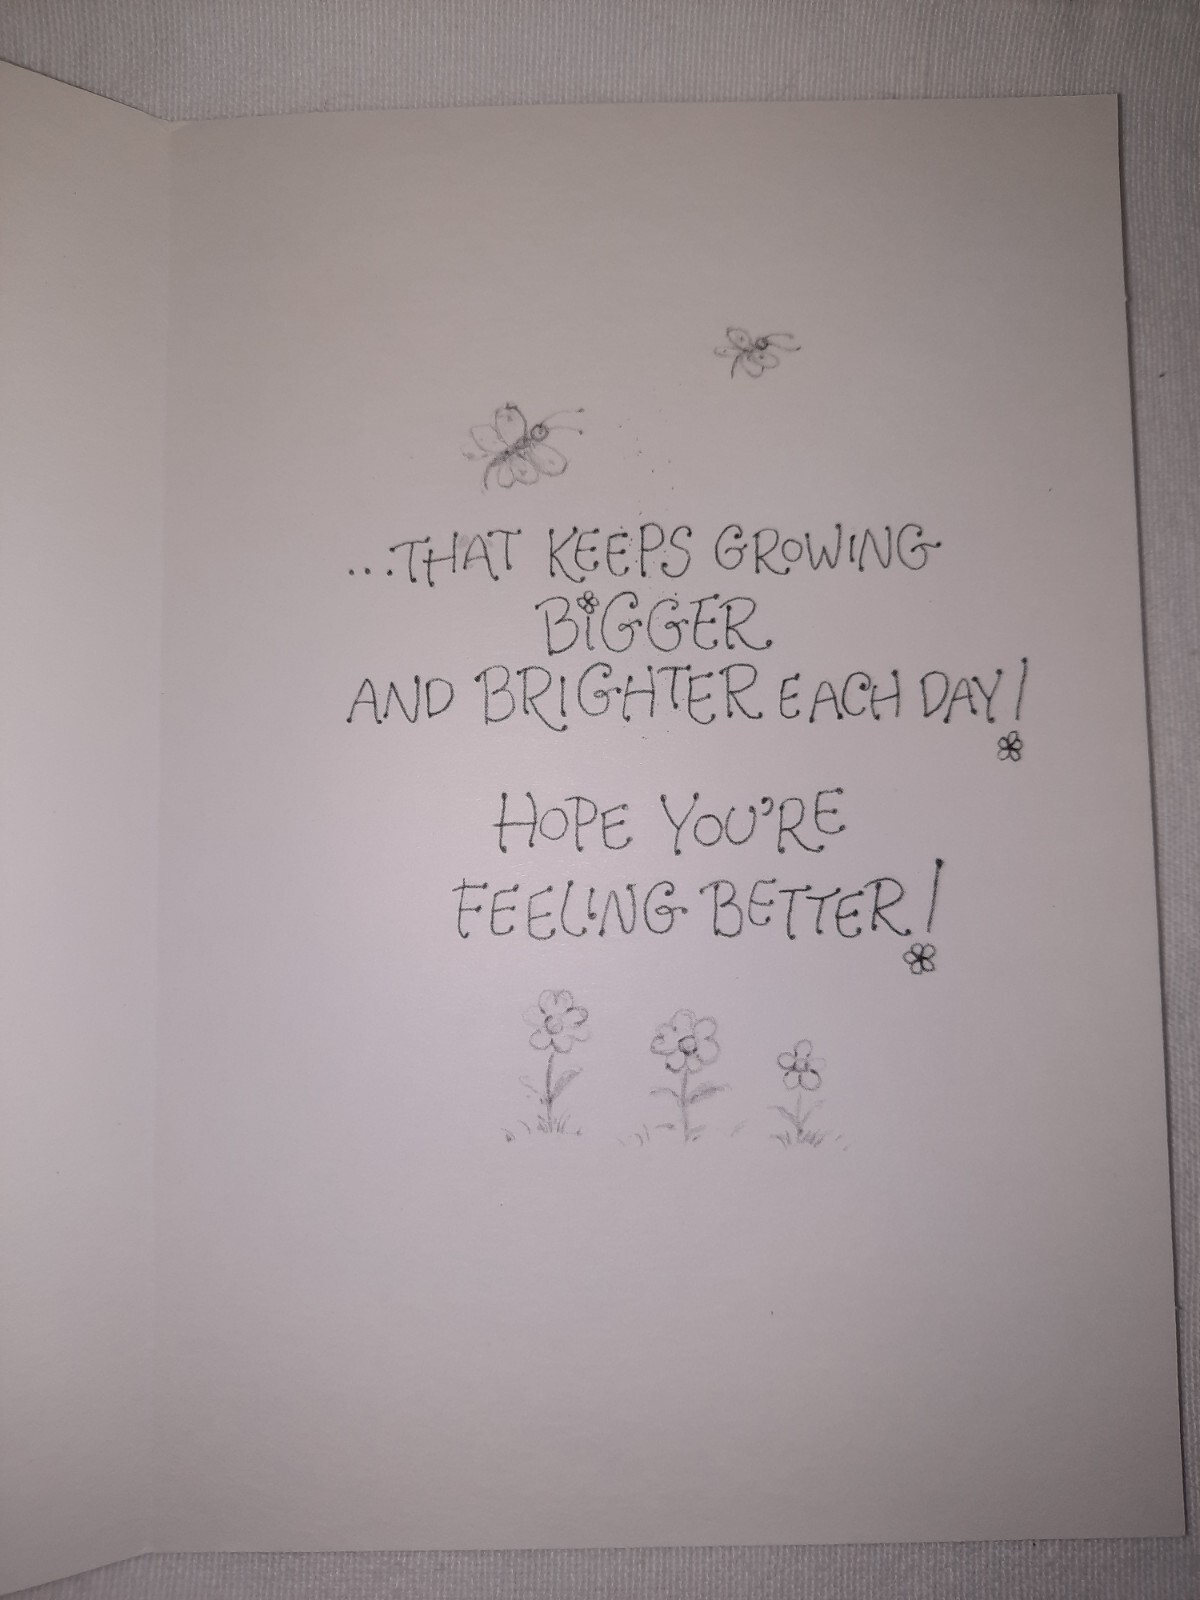 ...THAT KEEPS GROWING
BiGGER
AND BRIGHTER EACH DAY!
HOPE YOU'RE
FEELING BETTER!